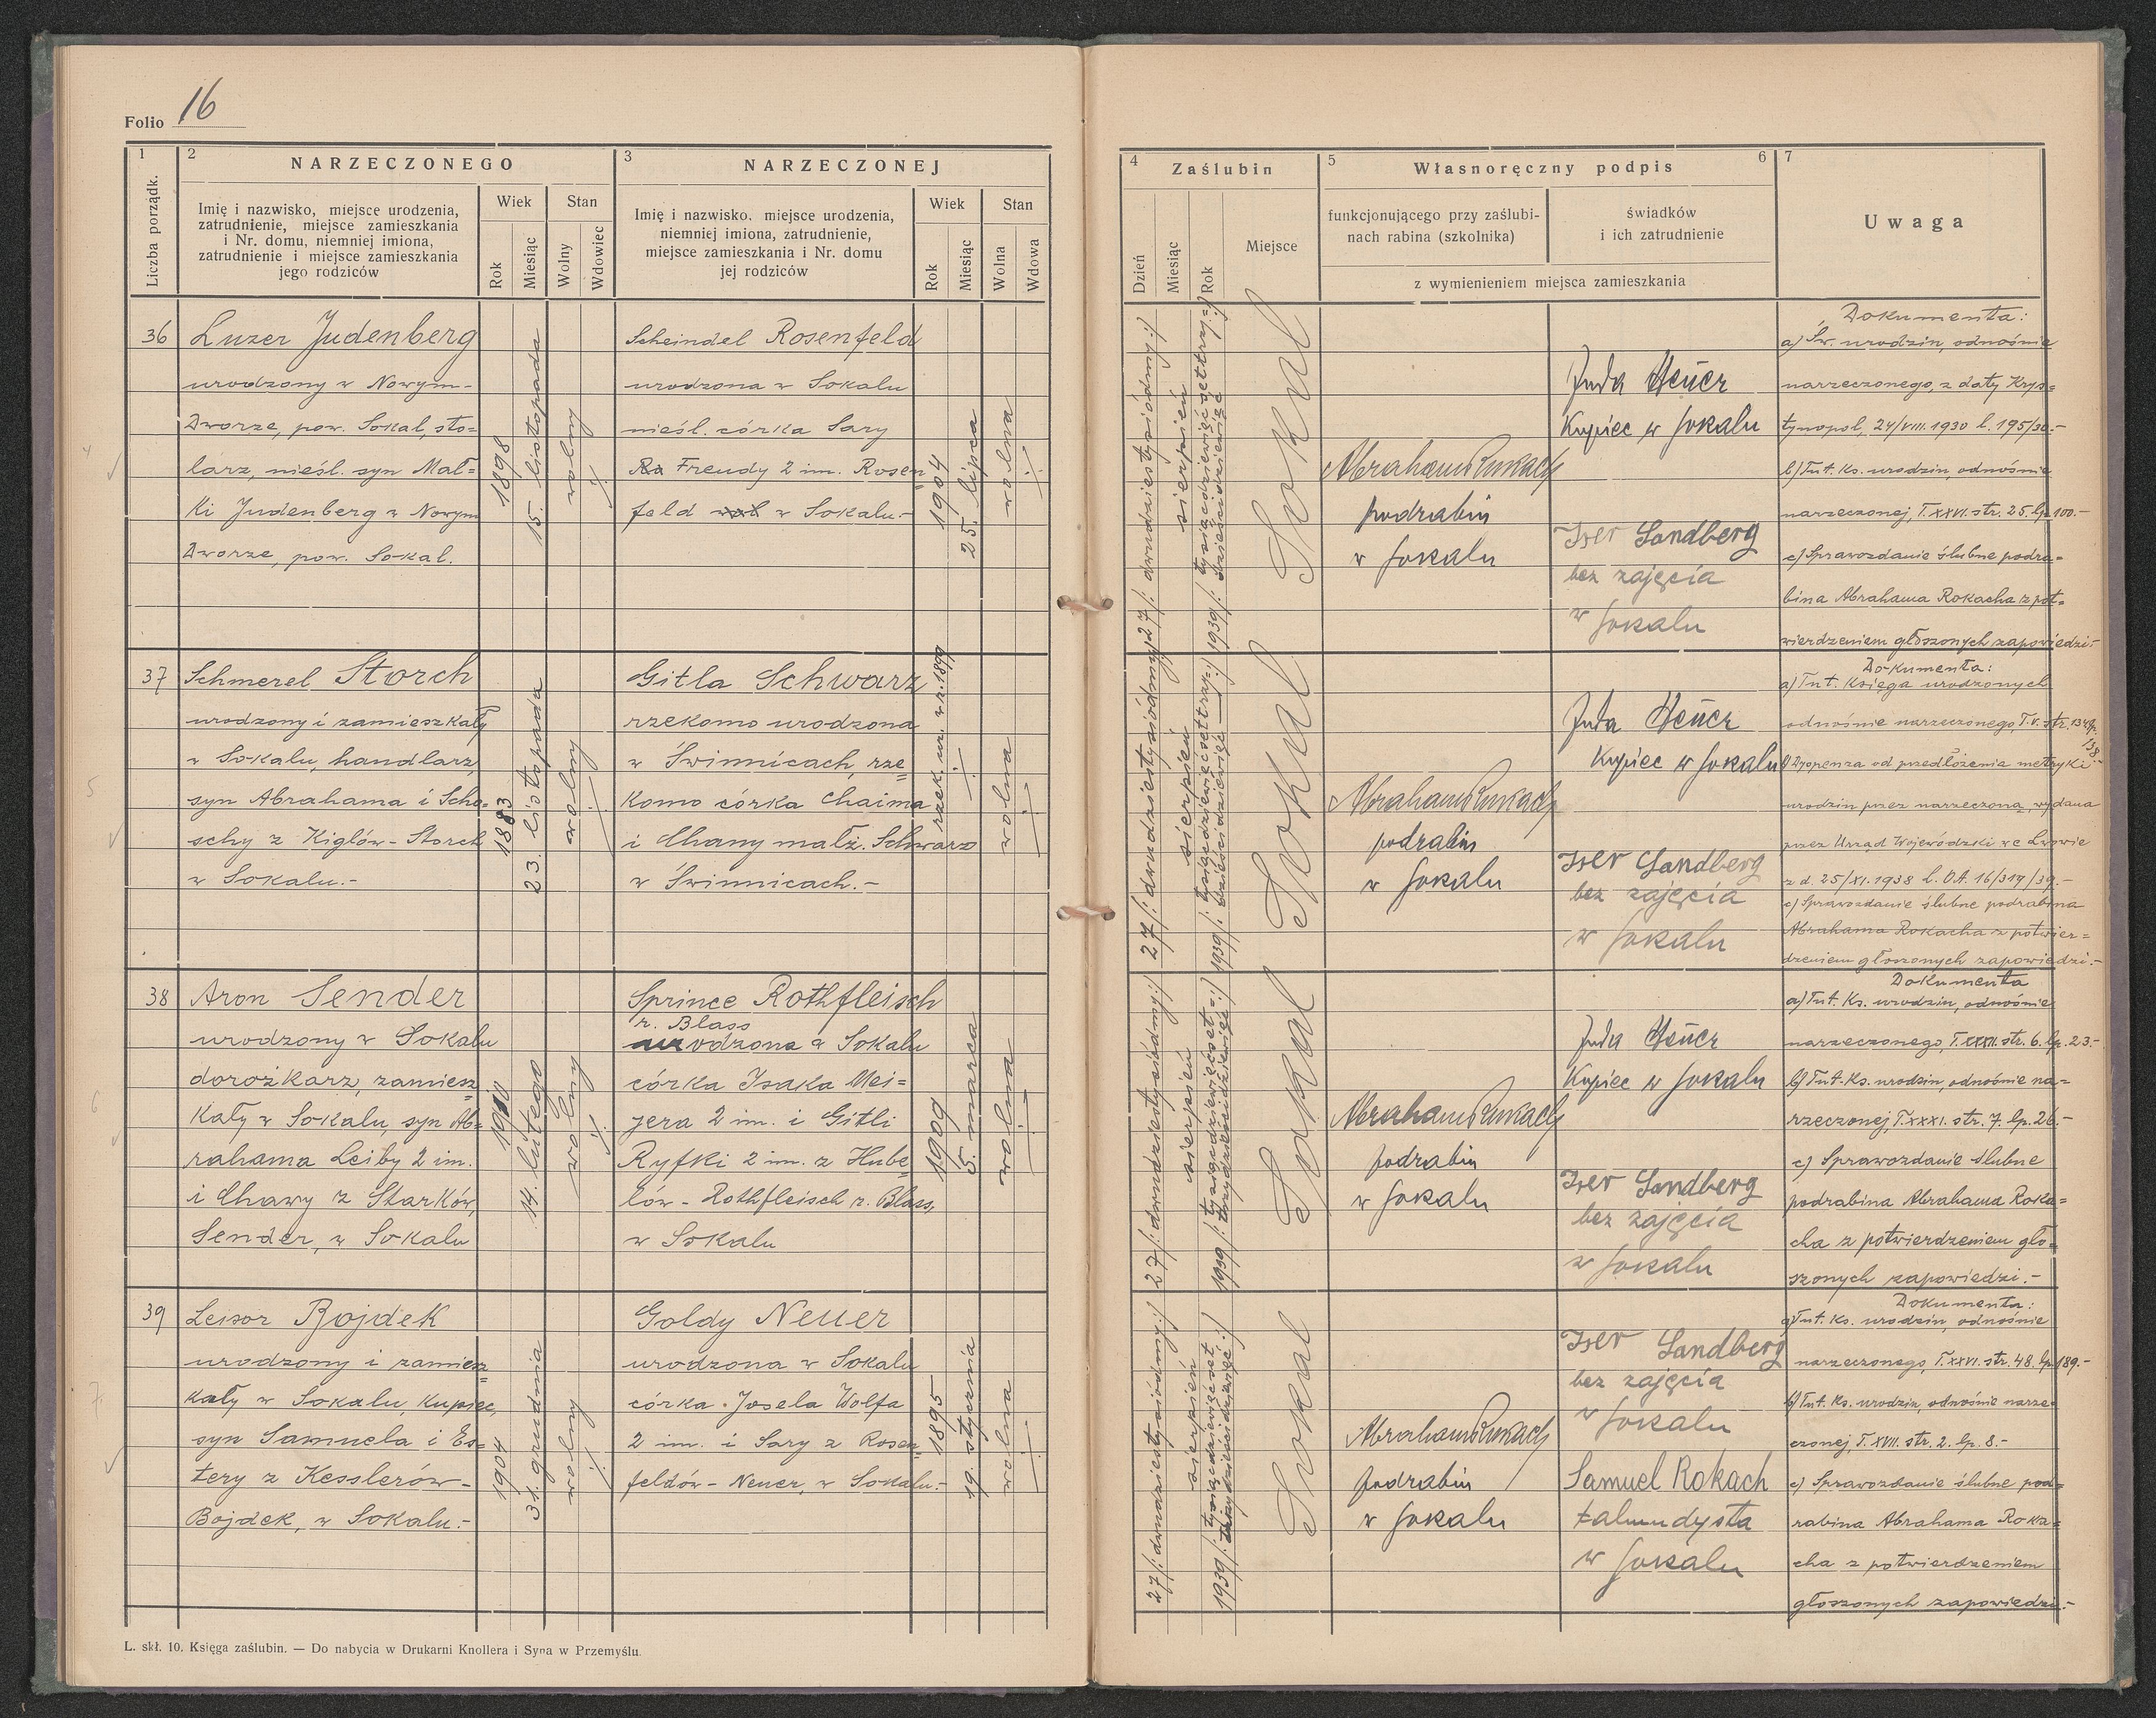 Folio 16
1
2
NARZECZONEGO
3
NARZECZONEJ
Liczba porządk.
Imię i nazwisko, miejsce urodzenia,
zatrudnienie, miejsce zamieszkania
i Nr. domu, niemniej imiona,
zatrudnienie i miejsce zamieszkania
jego rodziców
Wiek
Stan
Rok
Miesiąc
Wolny
Wdowiec
Imię i nazwisko, miejsce urodzenia,
niemniej imiona, zatrudnienie,
miejsce zamieszkania i Nr. domu
jej rodziców
Wiek
Stan
Rok
Miesiąc
Wolna
Wdowa
36
Luzer Judenberg
urodzony w Nowym-
Dworze, pow. Sokal, sto=
larz, nieśl. syn Mał=
ki Judenberg w Nowym
Dworze, pow. Sokal.
1898
15. listopada
wolny
Scheindel Rosenfeld
urodzona w Sokalu
nieśl. córka Sary
Freudy 2 im. Rosen=
feld w Sokalu.-
1904
25. lipca
wolna
37
Schmerel Storch
urodzony i zamieszkały
w Sokalu, handlarz,
syn Abrahama i Scho=
schy z Kiglów-Storch
w Sokalu.-
1883
23. listopada
wolny
Gitla Schwarz
rzekomo urodzona
w Świnnicach, rze=
komo córka Chaima
i Chany małż. Schwarz
w Świnnicach.-
rzek. ur. w r. 1899
wolna
38
Aron Sender
urodzony w Sokalu
dorożkarz, zamiesz=
kały w Sokalu, syn Ab=
rahama Leiby 2 im.
i Chawy z Starków,
Sender, w Sokalu
1910
14. lutego
wolny
Sprince Rothfleisch
r. Blass
urodzona w Sokalu
córka Isaka Mei=
jera 2 im. i Gitli
Ryfki 2 im. z Hube=
lów - Rothfleisch r. Blass,
w Sokalu
1909
5. marca
wolna
39
Leisor Bojdek
urodzony i zamiesz=
kały w Sokalu, kupiec,
syn Samuela i Es=
tery z Kesslerów-
Bojdek, w Sokalu.-
1904
31. grudnia
wolny
Goldy Neuer
urodzona w Sokalu
córka Josela Wolfa
2 im. i Sary z Rosen=
feldów - Neuer, w Sokalu.-
1895
19. stycznia
wolna
L. skł. 10. Księga zaślubin. — Do nabycia w Drukarni Knollera i Syna w Przemyślu.
4
Zaślubin
5
Własnoręczny podpis
6
7
Dzień
Miesiąc
Rok
Miejsce
funkcjonującego przy zaślubi-
nach rabina (szkolnika)
świadków
i ich zatrudnienie
z wymienieniem miejsca zamieszkania
Uwaga
27/: dwudziesty siódmy:/
sierpień
1939/: tysiąc dziewięćset trzy=
dzieści dziewięć:/
Sokal
Abraham Rukach
podrabin
w Sokalu
Juda Heücr
Kupiec w Sokalu
Iser Sandberg
bez zajęcia
w Sokalu
Dokumenta:
a) Św. urodzin, odnośnie
narzeczonego, z daty Krys=
tynopol, 24/VIII.1930 l. 195/30.-
b) Tut. Ks. urodzin, odnośnie
narzeczonej, T. XXVI. str. 25. lp. 100.-
c) Sprawozdanie ślubne podra=
bina Abrahama Rokacha z pot=
wierdzeniem głoszonych zapowiedzi.-
27/: dwudziesty siódmy:/
sierpień
1939/: tysiąc dziewięćset trzy=
dzieści dziewięć:/
Sokal
Abraham Rukach
podrabin
w Sokalu
Juda Heücr
Kupiec w Sokalu
Iser Sandberg
bez zajęcia
w Sokalu
Dokumenta:
a) Tut. Księga urodzonych
odnośnie narzeczonego, T. V. str. 134 lp.
138.-
b) Dyspenza od przedłożenia metryki
urodzin przez narzeczoną, wydana
przez Urząd Wojewódzki we Lwowie
z d. 25/XI.1938 l. O.A. 16/314/39.-
c) Sprawozdanie ślubne podrabina
Abrahama Rokacha z potwier=
dzeniem głoszonych zapowiedzi.-
27/: dwudziesty siódmy:/
sierpień
1939/: tysiąc dziewięćset=
trzydzieści dziewięć:/
Sokal
Abraham Rukach
podrabin
w Sokalu
Juda Heücr
Kupiec w Sokalu
Iser Sandberg
bez zajęcia
w Sokalu
Dokumenta
a) Tut. Ks. urodzin, odnośnie
narzeczonego, T. XXXII. str. 6. lp. 23.-
b) Tut. Ks. urodzin, odnośnie na=
rzeczonej, T. XXXI. str. 7. lp. 26.-
c) Sprawozdanie ślubne
podrabina Abrahama Roka=
cha z potwierdzeniem gło=
szonych zapowiedzi.-
27/: dwudziesty siódmy:/
sierpień
1939/: tysiąc dziewięćset
trzydzieści dziewięć:/
Sokal
Abraham Rukach
podrabin
w Sokalu
Iser Sandberg
bez zajęcia
w Sokalu
Samuel Rokach
talmudysta
w Sokalu
Dokumenta:
a) Tut. Ks. urodzin, odnośnie
narzeczonego, T. XXVI. str. 48. lp. 189.-
b) Tut. Ks. urodzin, odnośnie narze=
czonej, T. XVII. str. 2. lp. 8.-
c) Sprawozdanie ślubne pod=
rabina Abrahama Roka=
cha z potwierdzeniem
głoszonych zapowiedzi.-